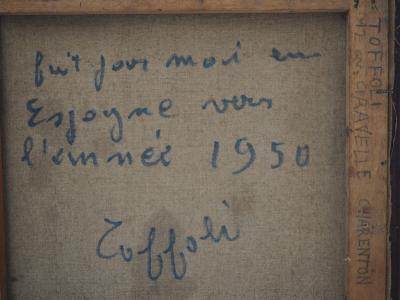 fait par moi en
Espagne vers
l'année 1950
Toffoli
TOFFOLI
CHARENTON